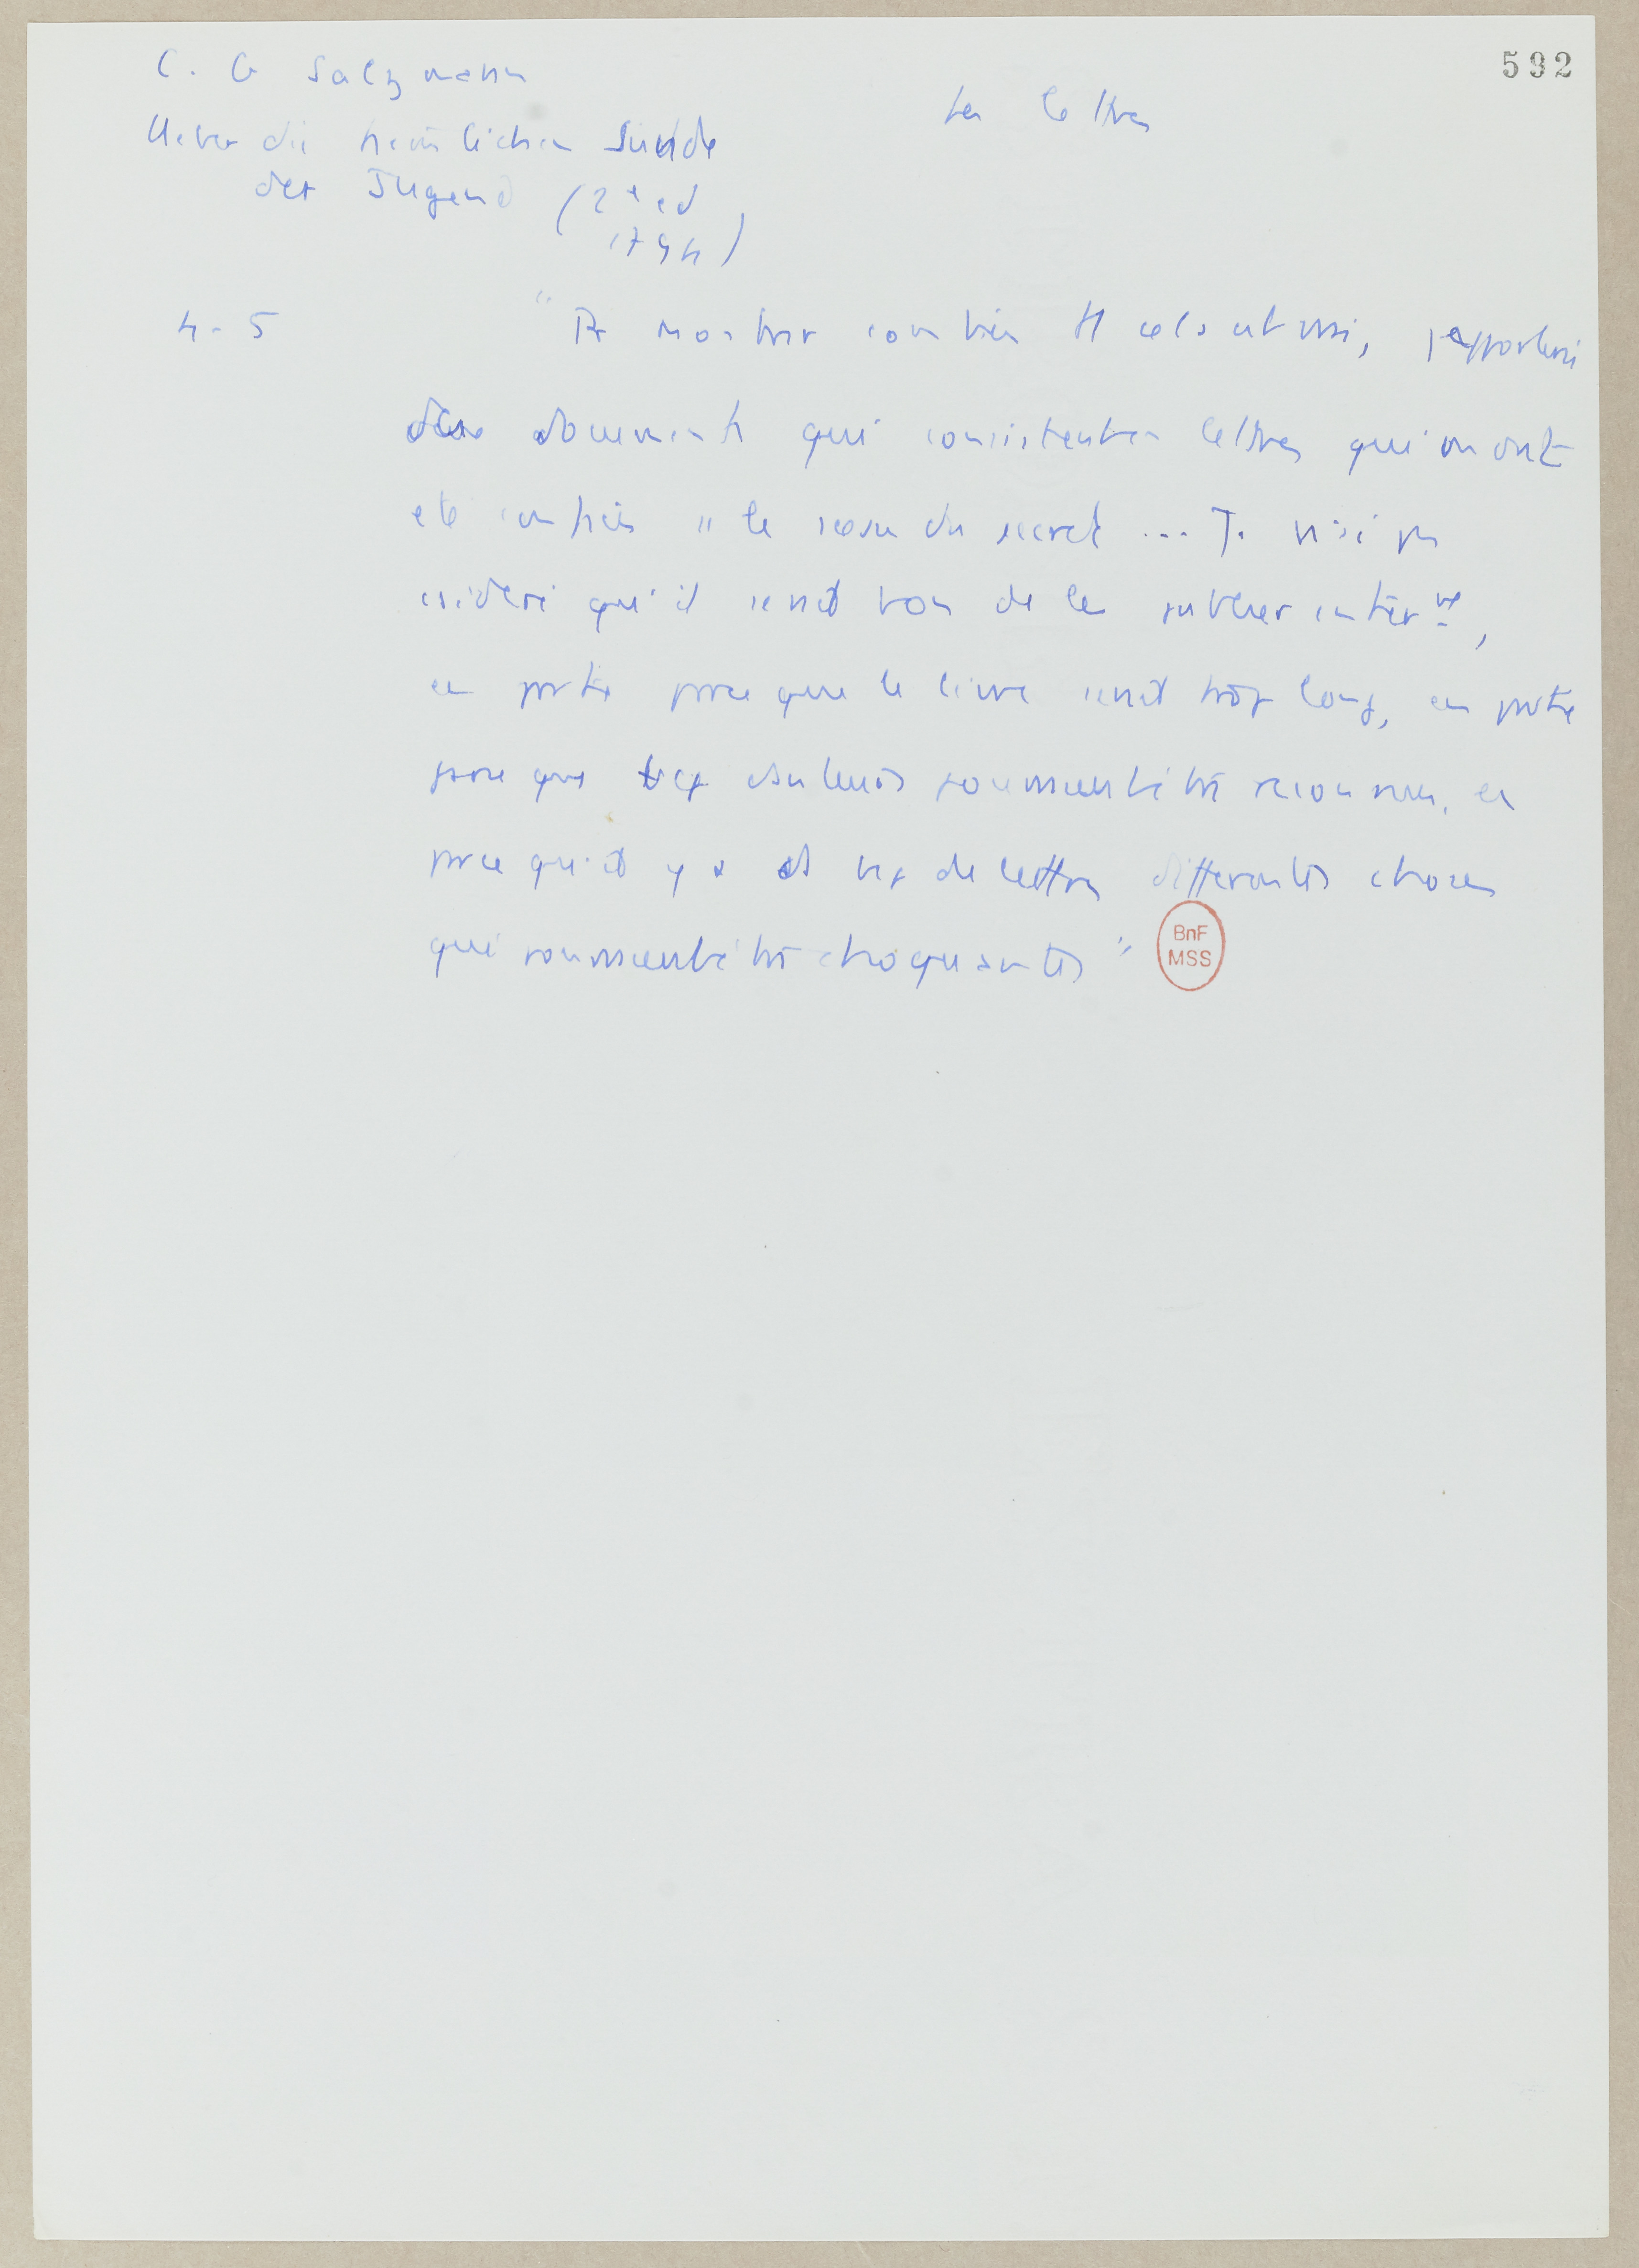 592
C. G Salzmann
Les lettres
Ueber die heimlichen Sünde
der Jugend (2e ed
1794)
4-5
"Pr montrer combien tt cela est vrai, j'apporterai
des documents qui consistent en lettres qui m'ont
ete confiées ss le sceau du secret ... Je n'ai pas
considéré qu'il serait bon de les publier entièrt,
en partie parce que le livre serait trop long, en partie
parce que bcp d'auteurs pourraient être reconnus, et
parce qu'il y a ds bcp de lettres différentes choses
qui pourraient être choquantes"
BnF
MSS